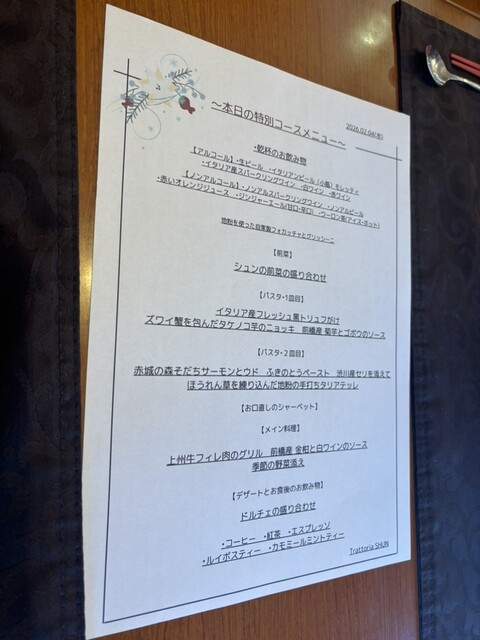 2026.02.04(水)
～本日の特別コースメニュー～
・乾杯のお飲み物
【アルコール】・生ビール ・イタリアンビール（小瓶）モレッティ
・イタリア産スパークリングワイン ・白ワイン ・赤ワイン
【ノンアルコール】・ノンアルスパークリングワイン ・ノンアルビール
・赤いオレンジジュース ・ジンジャーエール(甘口・辛口) ・ウーロン茶(アイス・ホット)
地粉を使った自家製フォカッチャとグリッシーニ
【前菜】
シュンの前菜の盛り合わせ
【パスタ・1皿目】
イタリア産フレッシュ黒トリュフがけ
ズワイ蟹を包んだタケノコ芋のニョッキ 前橋産 菊芋とゴボウのソース
【パスタ・2皿目】
赤城の森そだちサーモンとウド ふきのとうペースト 渋川産セリを添えて
ほうれん草を練り込んだ地粉の手打ちタリアテッレ
【お口直しのシャーベット】
【メイン料理】
上州牛フィレ肉のグリル 前橋産 金柑と白ワインのソース
季節の野菜添え
【デザートとお食後のお飲み物】
ドルチェの盛り合わせ
・コーヒー ・紅茶 ・エスプレッソ
・ルイボスティー ・カモミールミントティー
Trattoria SHUN